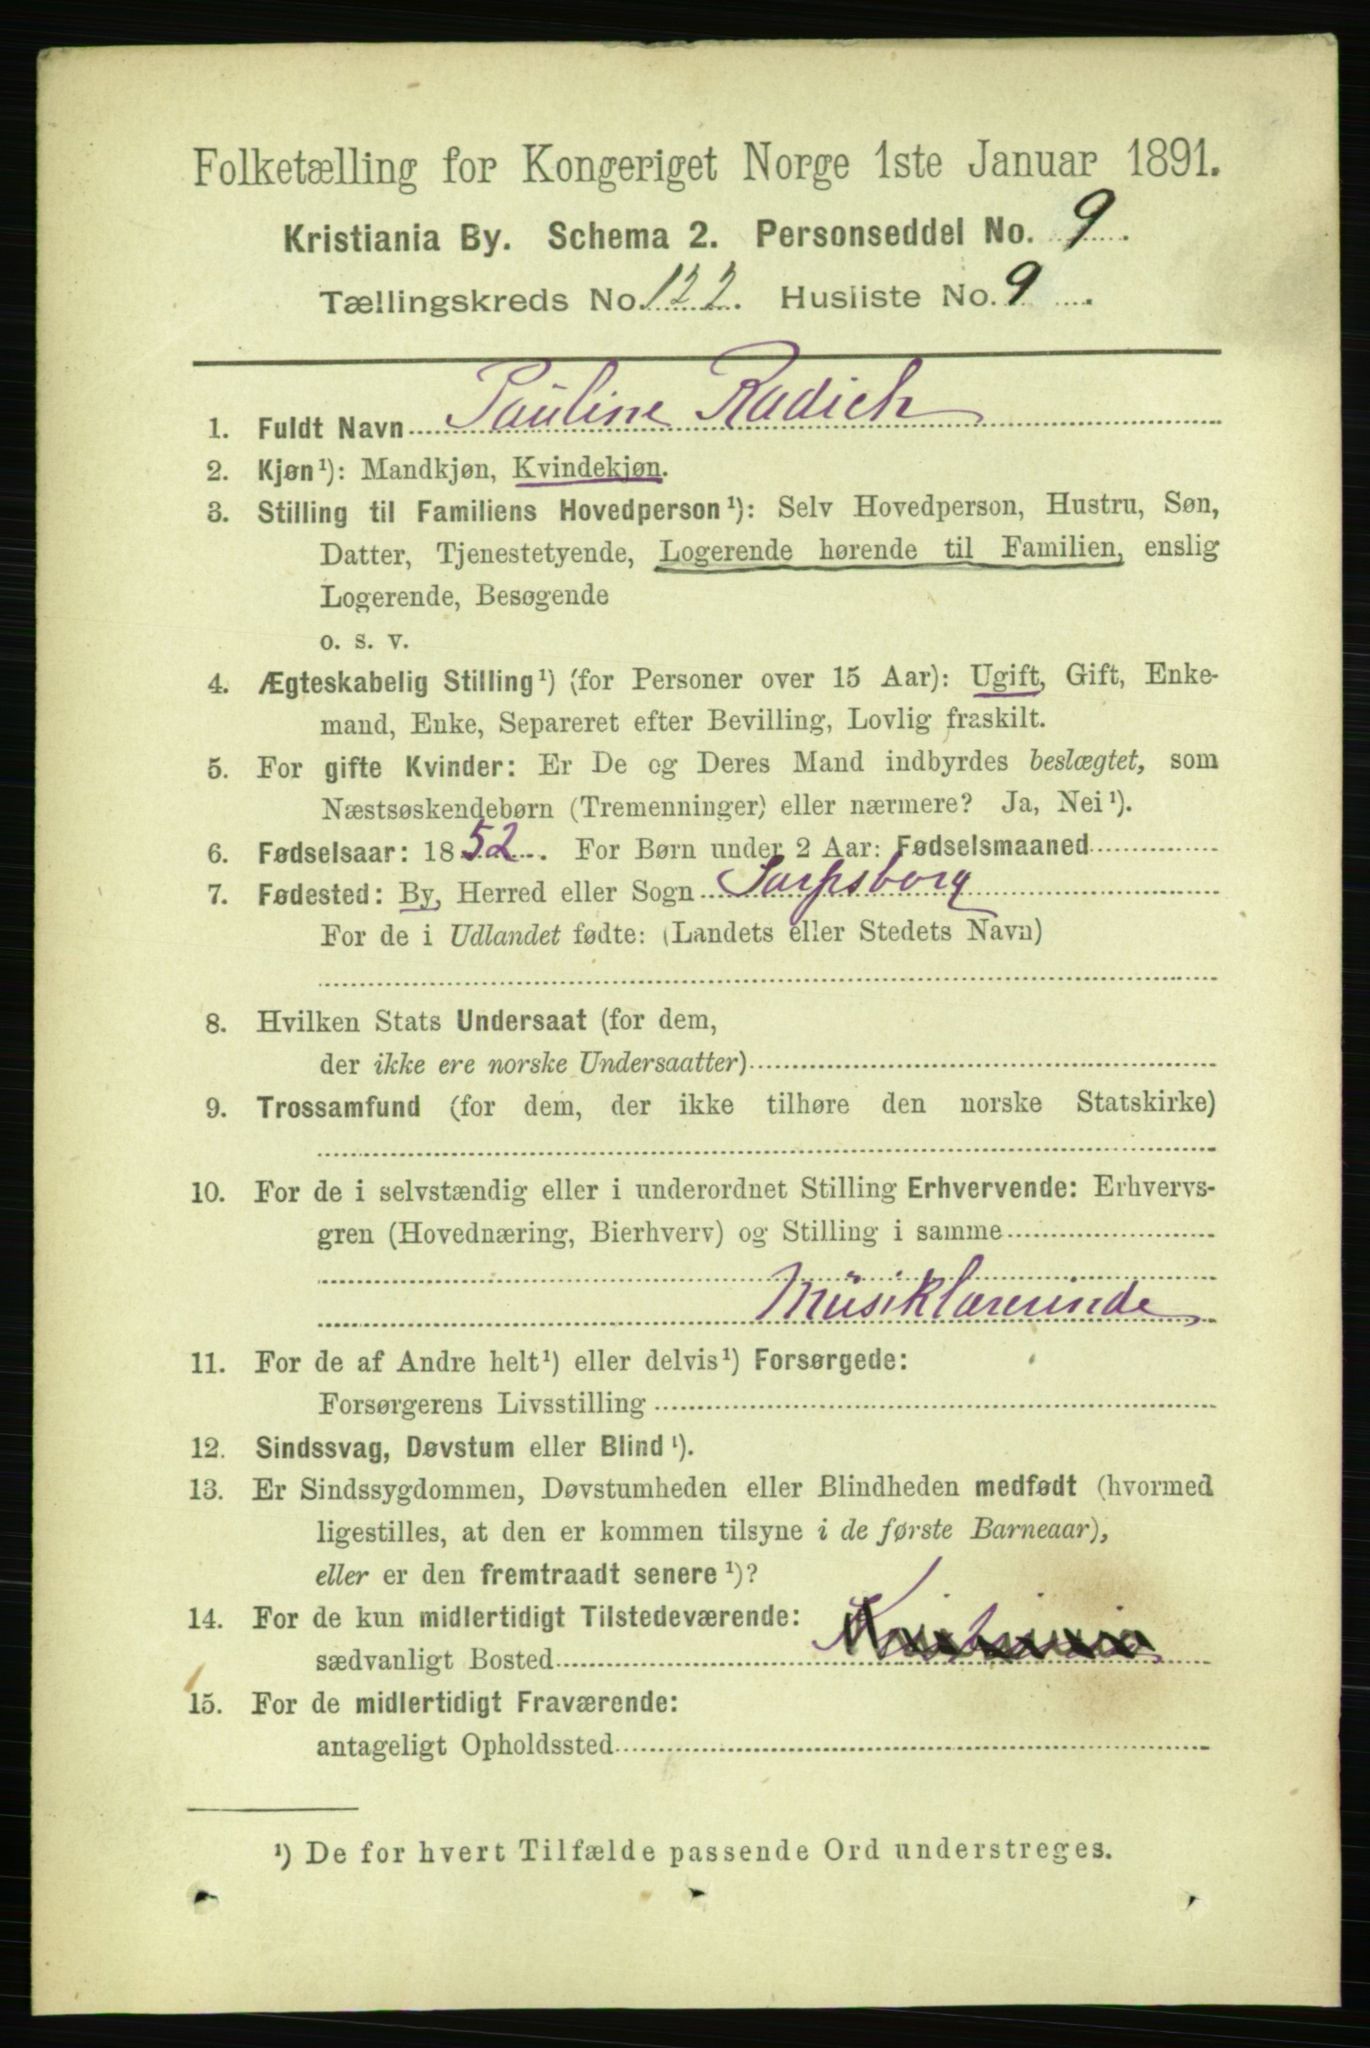 Folketælling for Kongeriget Norge 1ste Januar 1891.
Kristiania By. Schema 2. Personseddel No. 9.
Tællingskreds No. 122. Husliste No. 9.
1. Fuldt Navn Pauline Radich
2. Kjøn¹): Mandkjøn, Kvindekjøn.
3. Stilling til Familiens Hovedperson¹): Selv Hovedperson, Hustru, Søn,
Datter, Tjenestetyende, Logerende hørende til Familien, enslig
Logerende, Besøgende
o. s. v.
4. Ægteskabelig Stilling¹) (for Personer over 15 Aar): Ugift, Gift, Enke-
mand, Enke, Separeret efter Bevilling, Lovlig fraskilt.
5. For gifte Kvinder: Er De og Deres Mand indbyrdes beslægtet, som
Næstsøskendebørn (Tremenninger) eller nærmere? Ja, Nei¹).
6. Fødselsaar: 1852. For Børn under 2 Aar: Fødselsmaaned
7. Fødested: By, Herred eller Sogn Sarpsborg
For de i Udlandet fødte: (Landets eller Stedets Navn)
8. Hvilken Stats Undersaat (for dem,
der ikke ere norske Undersaatter)
9. Trossamfund (for dem, der ikke tilhøre den norske Statskirke)
10. For de i selvstændig eller i underordnet Stilling Erhvervende: Erhvervs-
gren (Hovednæring, Bierhverv) og Stilling i samme
Musiklærerinde
11. For de af Andre helt¹) eller delvis¹) Forsørgede:
Forsørgerens Livsstilling
12. Sindssvag, Døvstum eller Blind¹).
13. Er Sindssygdommen, Døvstumheden eller Blindheden medfødt (hvormed
ligestilles, at den er kommen tilsyne i de første Barneaar),
eller er den fremtraadt senere¹)?
14. For de kun midlertidigt Tilstedeværende:
sædvanligt Bosted Kristiania
15. For de midlertidigt Fraværende:
antageligt Opholdssted
¹) De for hvert Tilfælde passende Ord understreges.